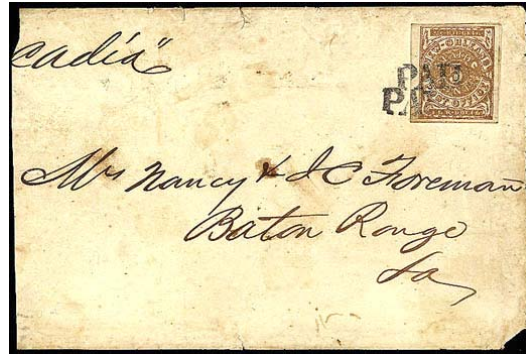 cadia"
PAID
PA
Mrs Nancy & J C Foreman
Baton Rouge
La